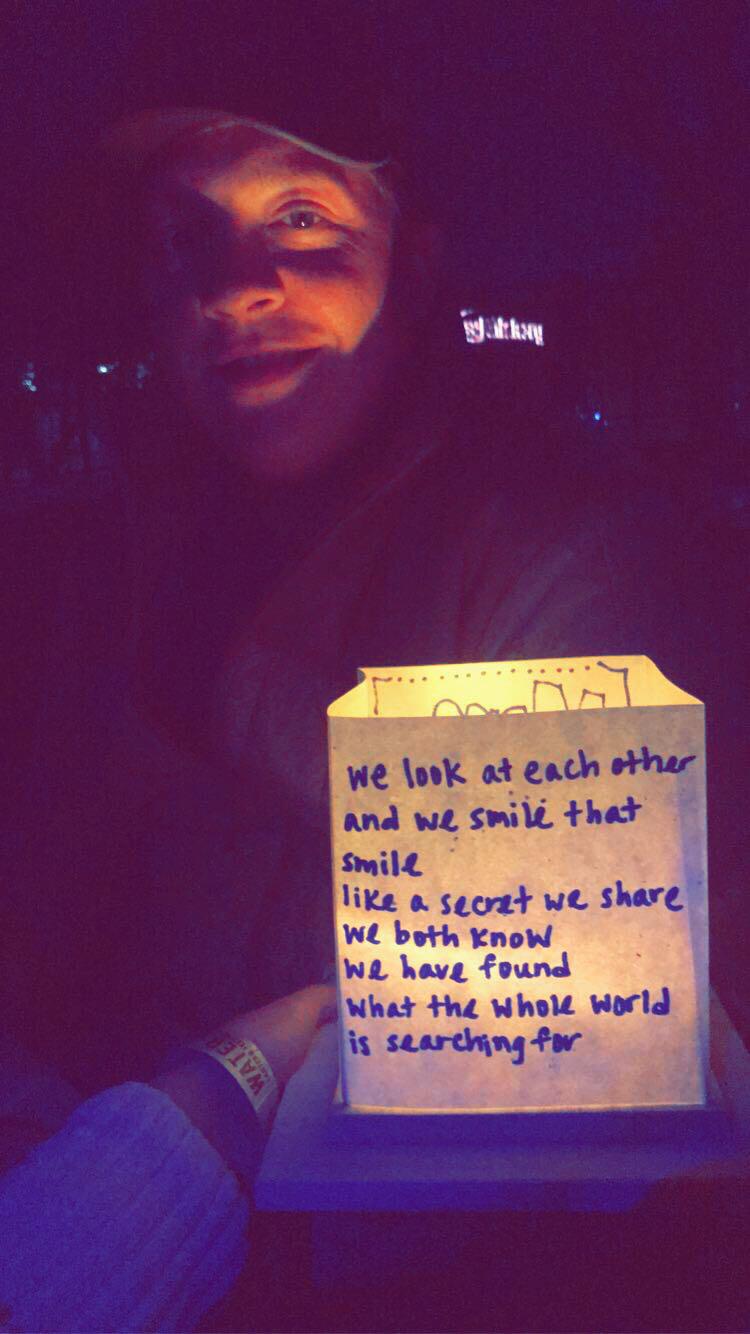 we look at each other
and we smile that
smile
like a secret we share
we both know
we have found
what the whole world
is searching for
WATER